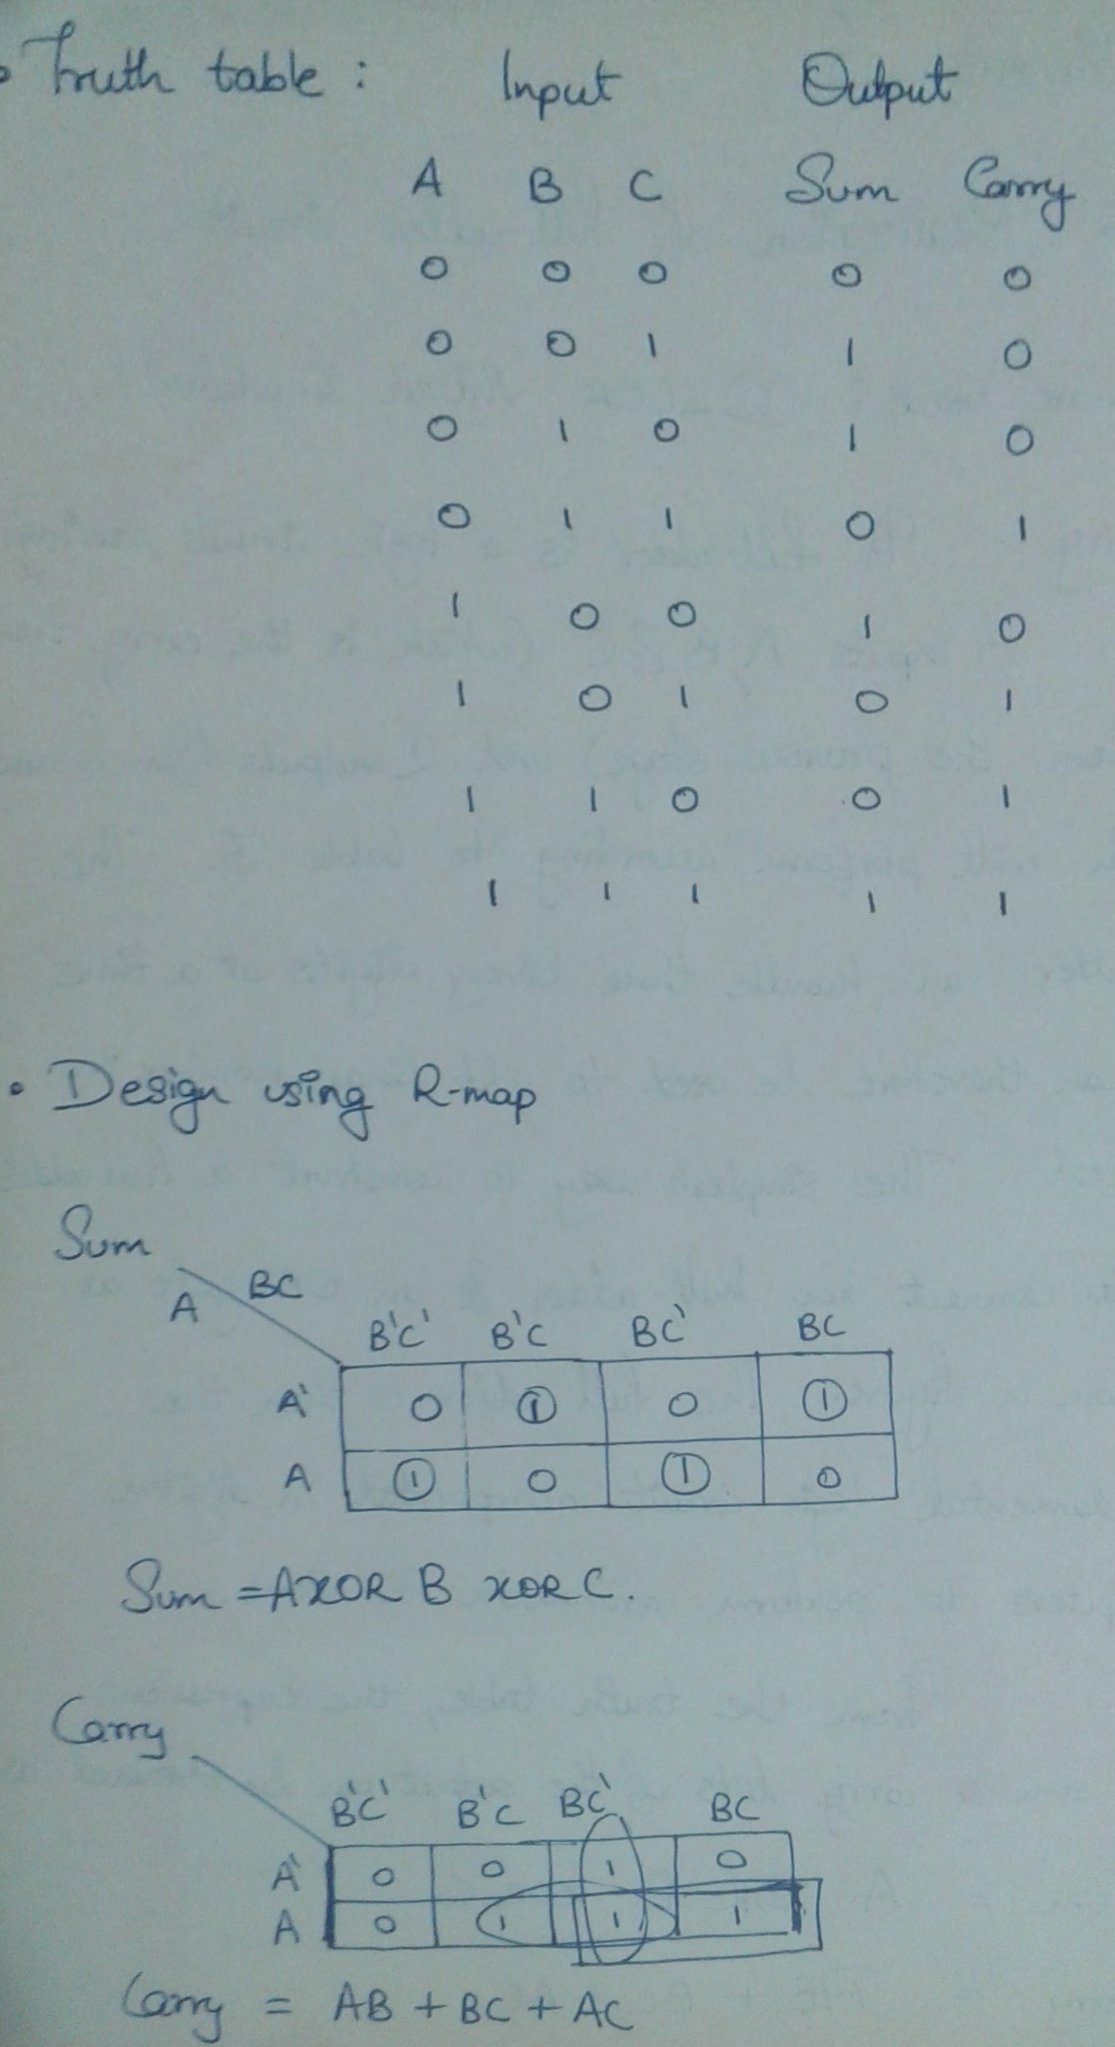 • Truth table : Input Output
A B C Sum Carry
0 0 0 0 0
0 0 1 1 0
0 1 0 1 0
0 1 1 0 1
1 0 0 1 0
1 0 1 0 1
1 1 0 0 1
1 1 1 1 1
• Design using R-map
Sum
A BC
B'C' B'C BC' BC
A' 0 1 0 1
A 1 0 1 0
Sum = A XOR B XOR C.
Carry
B'C' B'C BC' BC
A' 0 0 1 0
A 0 1 1 1
Carry = AB + BC + AC